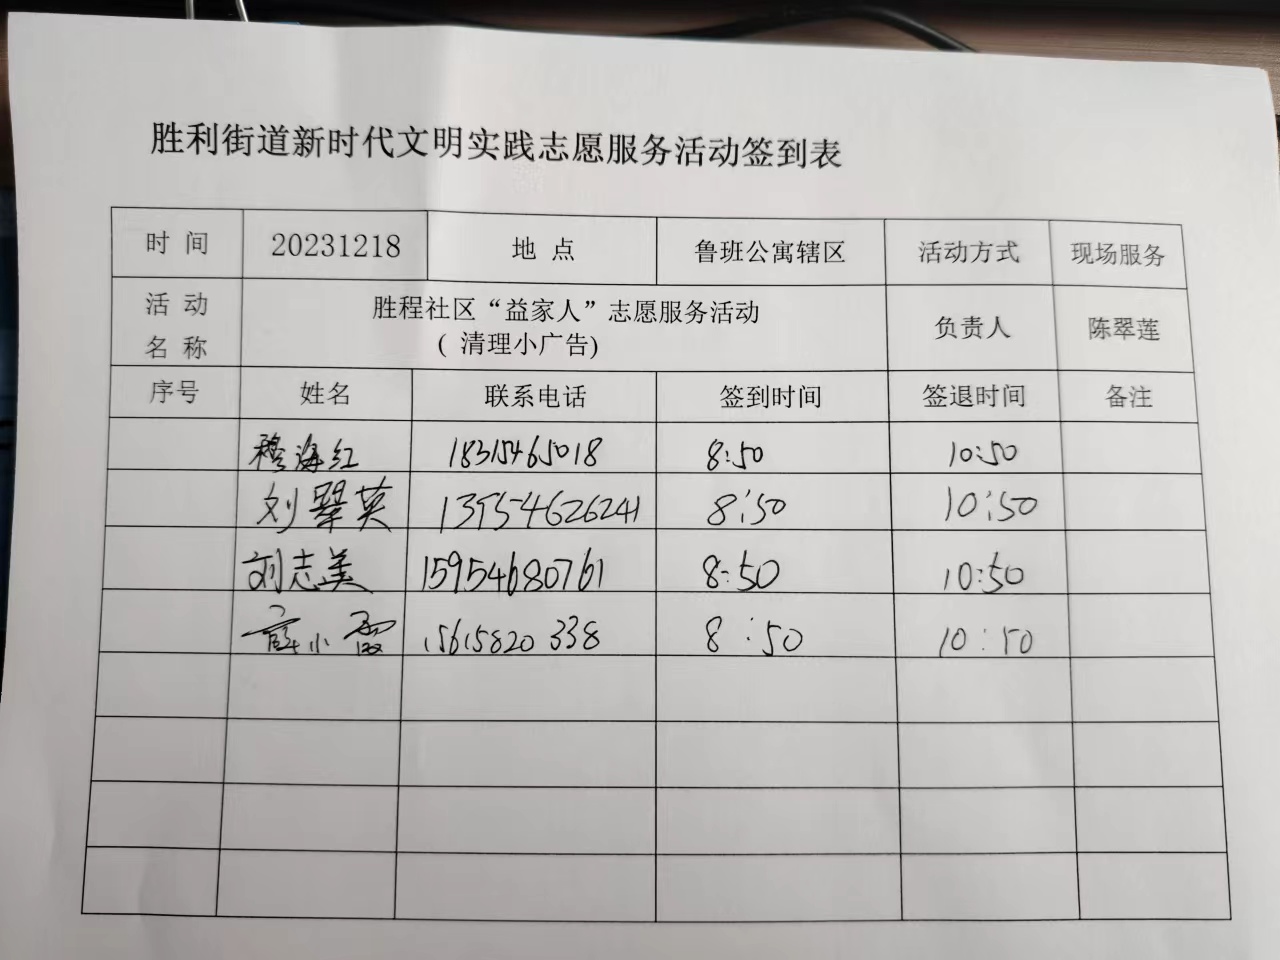 胜利街道新时代文明实践志愿服务活动签到表
时 间 20231218 地 点 鲁班公寓辖区 活动方式 现场服务
活 动 名 称 胜程社区“益家人”志愿服务活动 ( 清理小广告) 负责人 陈翠莲
序号 姓名 联系电话 签到时间 签退时间 备注
穆海红 18315465018 8:50 10:50
刘翠英 13954626241 8:50 10:50
刘志美 15954680761 8:50 10:50
薛小霞 15615820338 8:50 10:50